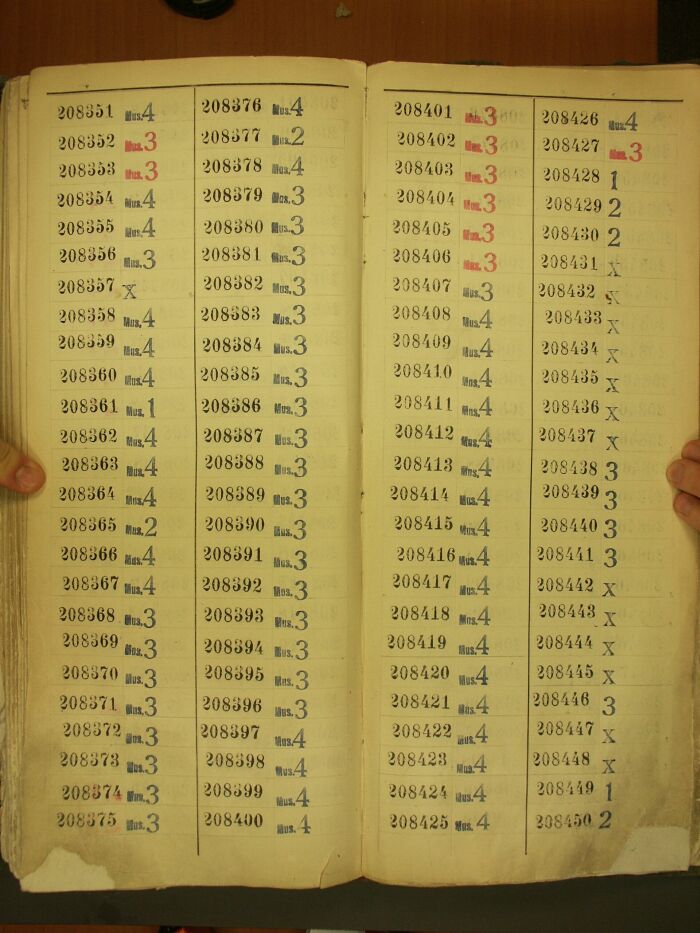 208351 Mus.4
208352 Mus.3
208353 Mus.3
208354 Mus.4
208355 Mus.4
208356 Mus.3
208357 X
208358 Mus.4
208359 Mus.4
208360 Mus.4
208361 Mus.1
208362 Mus.4
208363 Mus.4
208364 Mus.4
208365 Mus.2
208366 Mus.4
208367 Mus.4
208368 Mus.3
208369 Mus.3
208370 Mus.3
208371 Mus.3
208372 Mus.3
208373 Mus.3
208374 Mus.3
208375 Mus.3
208376 Mus.4
208377 Mus.2
208378 Mus.4
208379 Mus.3
208380 Mus.3
208381 Mus.3
208382 Mus.3
208383 Mus.3
208384 Mus.3
208385 Mus.3
208386 Mus.3
208387 Mus.3
208388 Mus.3
208389 Mus.3
208390 Mus.3
208391 Mus.3
208392 Mus.3
208393 Mus.3
208394 Mus.3
208395 Mus.3
208396 Mus.3
208397 Mus.4
208398 Mus.4
208399 Mus.4
208400 Mus.4
208401 Mus.3
208402 Mus.3
208403 Mus.3
208404 Mus.3
208405 Mus.3
208406 Mus.3
208407 Mus.3
208408 Mus.4
208409 Mus.4
208410 Mus.4
208411 Mus.4
208412 Mus.4
208413 Mus.4
208414 Mus.4
208415 Mus.4
208416 Mus.4
208417 Mus.4
208418 Mus.4
208419 Mus.4
208420 Mus.4
208421 Mus.4
208422 Mus.4
208423 Mus.4
208424 Mus.4
208425 Mus.4
208426 Mus.4
208427 Mus.3
208428 1
208429 2
208430 2
208431 X
208432 X
208433 X
208434 X
208435 X
208436 X
208437 X
208438 3
208439 3
208440 3
208441 3
208442 X
208443 X
208444 X
208445 X
208446 3
208447 X
208448 X
208449 1
208450 2